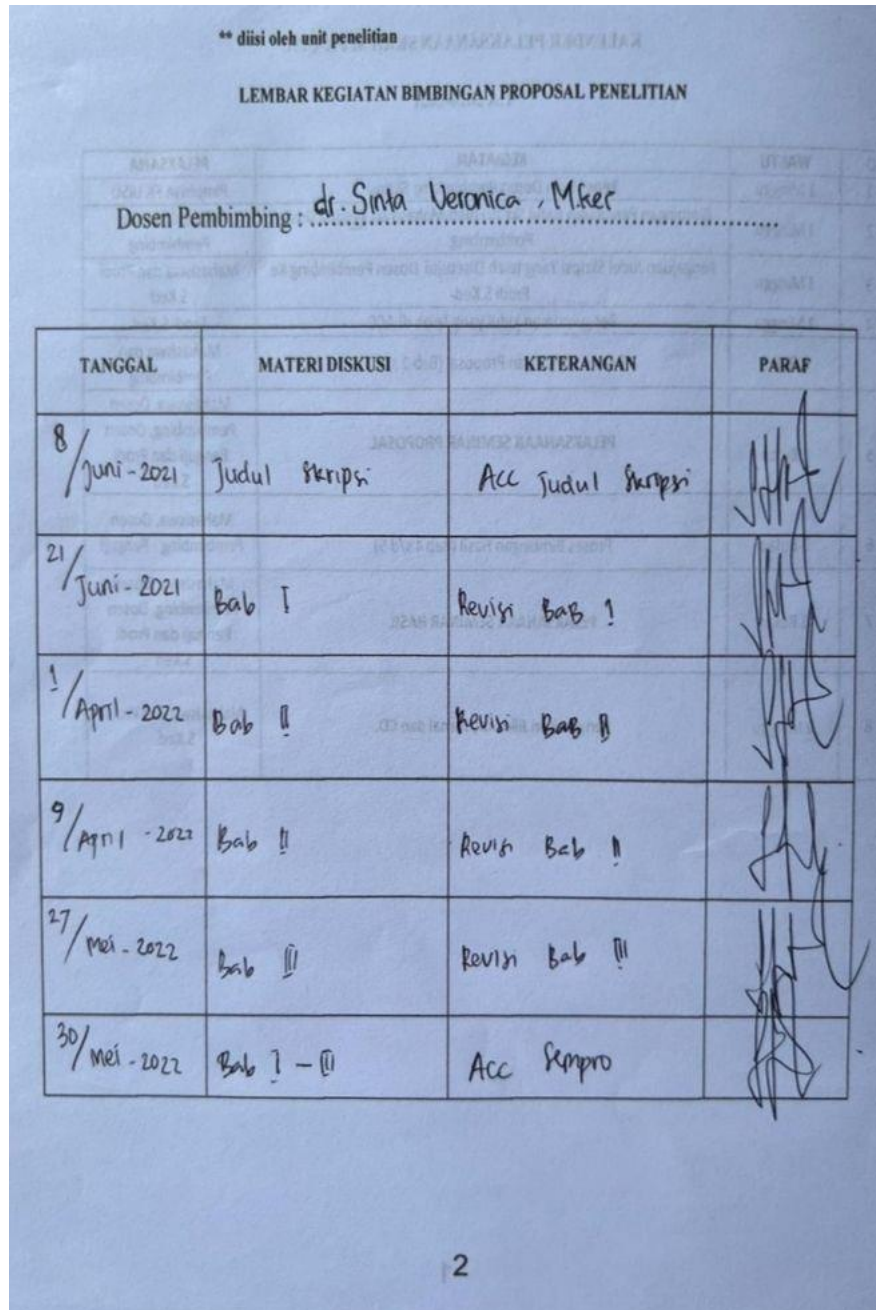 ** diisi oleh unit penelitian
LEMBAR KEGIATAN BIMBINGAN PROPOSAL PENELITIAN
Dosen Pembimbing : dr. Sinta Veronica, M.Ker
TANGGAL MATERI DISKUSI KETERANGAN PARAF
8/Juni-2021 Judul Skripsi Acc Judul Skripsi
21/Juni-2021 Bab I Revisi Bab 1
1/April-2022 Bab II Revisi Bab II
9/April-2022 Bab II Revisi Bab II
27/Mei-2022 Bab III Revisi Bab III
30/Mei-2022 Bab I - III Acc Sempro
2